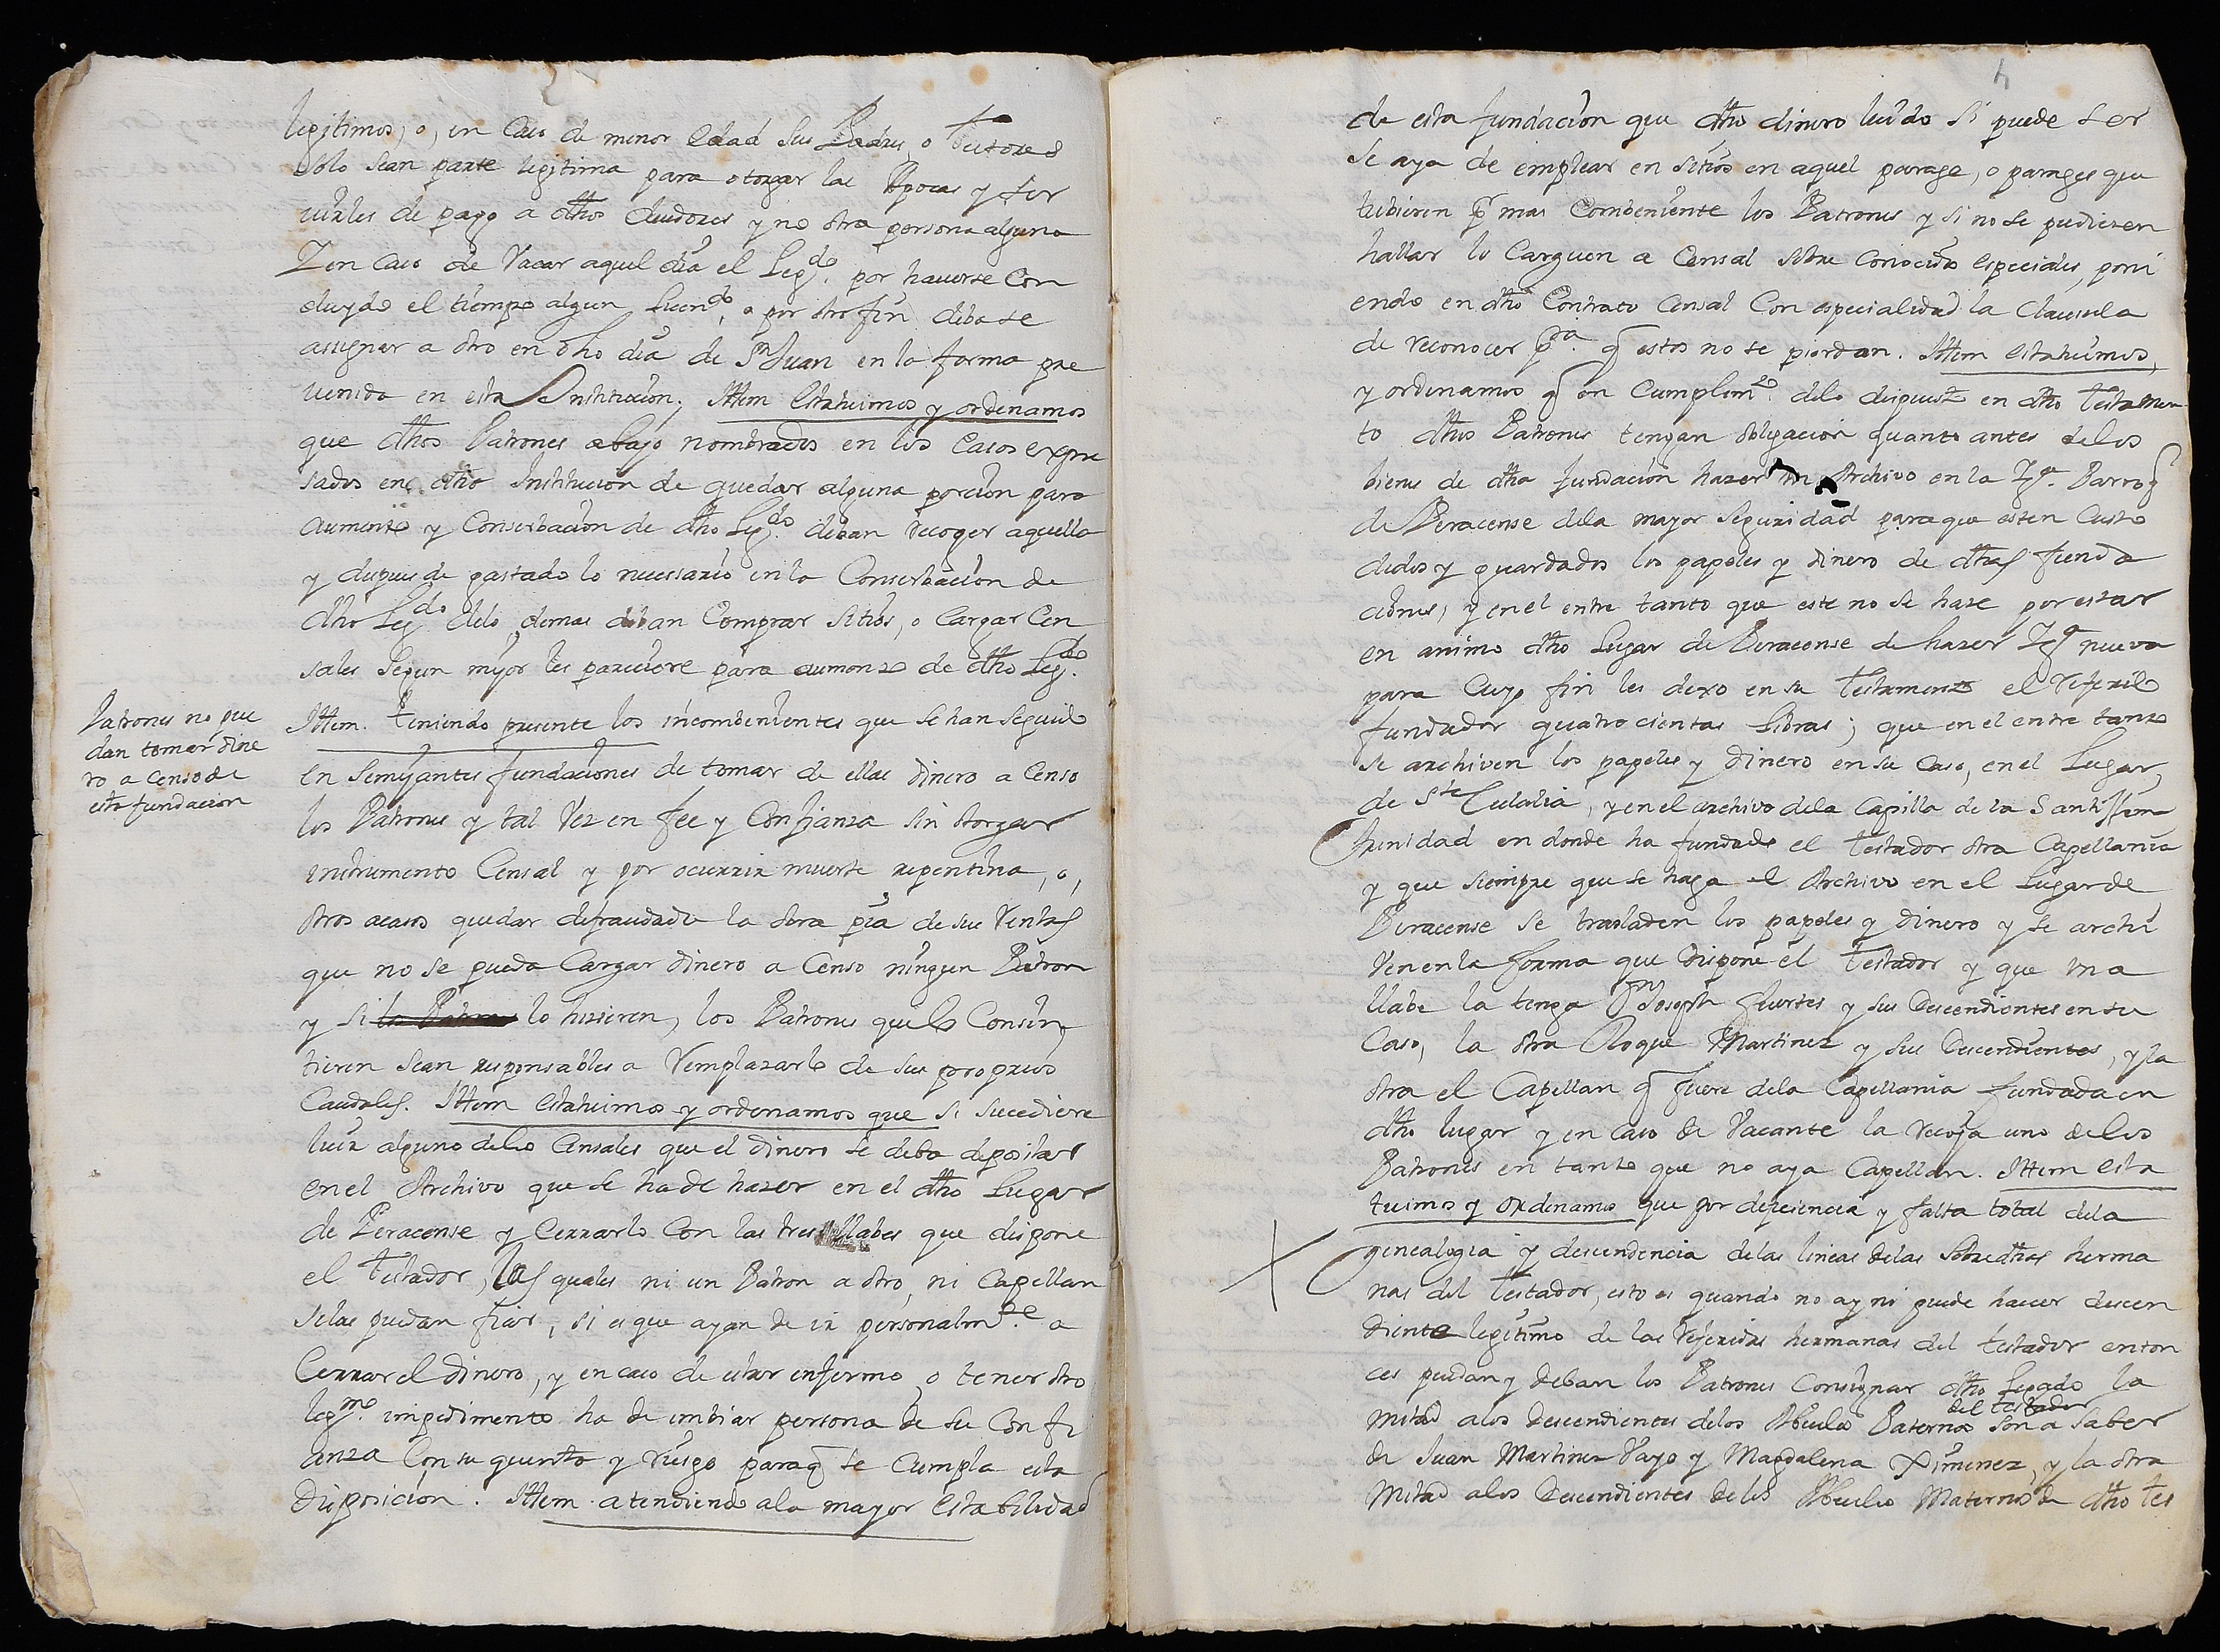 legitimos, o, en Caso de menor edad sus Padres, o Tutores
solo sean parte legitima para otorgar las Apocas y fir
males de pago a dthos deudores y no otra persona alguna
Y en caso de Vacar aquel dia el Leg.do por haverse Con
cluydo el tiempo algun Lucen.do, o por otro fin debase
assignar a otro en dho dia de Sn Juan en la forma pre
venida en esta Institucion; Ittem estatuimos y ordenamos
que dthos Patrones abajo nombrados en los casos expre
sados en dtha Institucion de quedar alguna porcion para
aumento y Conserbacion de dtho Leg.do deban recoger aquella
y despues de gastado lo necessario en la Conserbacion de
dtho Leg.do delo demas deban Comprar sitios, o Cargar Cen
sales segun mejor les pareciere para aumento de dtho Leg.do
Patrones no pue
dan tomar dine
ro a censo de
esta fundacion
Ittem. teniendo presente los incombenientes que se han seguido
en semejantes fundaciones de tomar de ellas dinero a Censo
los Patrones y tal Vez en fee y Confianza sin otorgar
instrumento Censal y por ocurrir muerte repentina, o,
otros acasos quedar defraudada la obra pia de sus Rentas
que no se pueda Cargar dinero a Censo ningun Patron
y si los Patrones lo hizieren, los Patrones que lo Consin
tieren sean responsables a Remplazarlo de sus proprios
Caudales. Ittem estatuimos y ordenamos que si sucediere
luir alguno delos Censales que el dinero se deba depositar
en el Archivo que se ha de hazer en el dtho Lugar
de Peracense y Cerrarlo Con las tres llabes que dispone
el testador, las quales ni un Patron a otro, ni Capellan
selas puedan fiar, si es que ayan de ir personalm.te a
Cerrar el dinero, y en caso de estar enfermo, o tener otro
leg.mo impedimento ha de imbiar persona de su Confi
anza Con su quenta y riesgo paraq se Cumpla esta
disposicion. Ittem atendiendo ala mayor estabilidad
4
de esta fundacion que dtho dinero luido si puede ser
se aya de emplear en sitios en aquel parage, o parages que
tubieren pr mas Combeniente los Patrones y si no se pudieren
hallar lo Carguen a Censal sobre Conocido especiales, poni
endo en dtho Contrato Censal Con especialidad la Clausula
de reconocer p.ra q estos no se pierdan. Ittem estatuimos,
y ordenamos q en Cumplim.to delo dispuesto en dtho testamen
to dthos Patrones tengan obligacion quanto antes delos
bienes de dtha fundacion hazer un Archivo en la Yg.a Parroq
de Peracense dela mayor seguridad para que esten Custo
didos y guardados los papeles y dinero de dthas funda
ciones, y en el entre tanto que este no se haze por estar
en animo dtho Lugar de Peracense de hazer Yg.a nueva
para Cuyo fin les dexo en su testamento el referido
fundador quatrocientas Libras; que en el entre tanto
se archiven los papeles y dinero en su Caso, en el Lugar
de Sta Eulalia, y en el archivo dela Capilla de la Santissima
Trinidad en donde ha fundado el testador otra Capellania
y que siempre que se haga el Archivo en el Lugar de
Peracense se trasladen los papeles y dinero y se archi
ven en la forma que dispone el testador y que una
llabe la tenga Dn Joseph fuertes y sus Descendientes en su
Caso, la otra Roque Martinez y sus Descendientes, y la
otra el Capellan q fuere dela Capellania fundada en
dtho lugar y en caso de Vacante la recoja uno delos
Patrones en tanto que no aya Capellan. Ittem esta
tuimos y ordenamos que por deficiencia y falta total dela
genealogia y descendencia delas lineas delas sobredthas herma
nas del testador, esto es quando no ay ni puede haver descen
diente legitimo de las referidas hermanas del testador enton
ces puedan y deban los Patrones Consignar dtho Legado la
mitad alos descendientes delos Abuelos Paternos del testador son a saber
de Juan Martinez Vayo y Magdalena Ximenez, y la otra
mitad alos Descendientes delos Abuelos Maternos de dtho tes